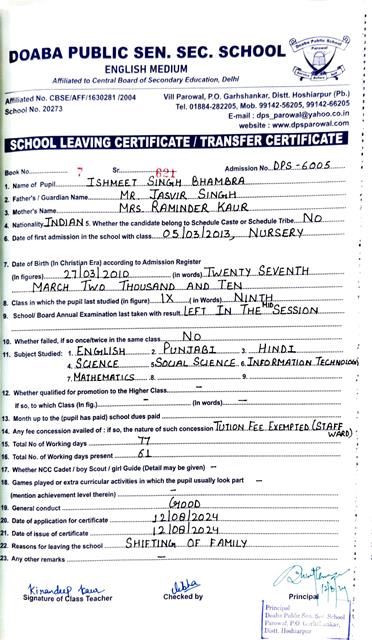 DOABA PUBLIC SEN. SEC. SCHOOL
ENGLISH MEDIUM
Affiliated to Central Board of Secondary Education, Delhi
Affiliated No. CBSE/AFF/1630281 /2004
School No. 20273
Vill Parowal, P.O. Garhshankar, Distt. Hoshiarpur (Pb.)
Tel. 01884-282205, Mob. 99142-56205, 99142-66205
E-mail : dps_parowal@yahoo.co.in
website : www.dpsparowal.com
SCHOOL LEAVING CERTIFICATE / TRANSFER CERTIFICATE
Book No. 7 Sr. 621 Admission No. DPS-6005
1. Name of Pupil ISHMEET SINGH BHAMBRA
2. Father's / Guardian Name MR. JASVIR SINGH
3. Mother's Name MRS. RAMINDER KAUR
4. Nationality INDIAN 5. Whether the candidate belong to Schedule Caste or Schedule Tribe NO
6. Date of first admission in the school with class 05/03/2013, NURSERY
7. Date of Birth (In Christian Era) according to Admission Register
(In figures) 27/03/2010 (In words) TWENTY SEVENTH
MARCH TWO THOUSAND AND TEN
8. Class in which the pupil last studied (in figure) IX (in Words) NINTH
9. School/ Board Annual Examination last taken with result LEFT IN THE MID SESSION
10. Whether failed, if so once/twice in the same class NO
11. Subject Studied: 1. ENGLISH 2. PUNJABI 3. HINDI
4. SCIENCE 5. SOCIAL SCIENCE 6. INFORMATION TECHNOLOGY
7. MATHEMATICS 8. 9.
12. Whether qualified for promotion to the Higher Class –
if so, to which Class (In fig.) – (In words) –
13. Month up to the (pupil has paid) school dues paid
14. Any fee concession availed of : if so, the nature of such concession TUTION FEE EXEMPTED (STAFF WARD)
15. Total No of Working days 77
16. Total No. of Working days present 61
17. Whether NCC Cadet / boy Scout / girl Guide (Detail may be given) –
18. Games played or extra curricular activities in which the pupil usually look part –
(mention achievement level therein)
19. General conduct GOOD
20. Date of application for certificate 12/08/2024
21. Date of issue of certificate 12/08/2024
22. Reasons for leaving the school SHIFTING OF FAMILY
23. Any other remarks –
Kirandeep Kaur
Signature of Class Teacher
Checked by
Principal
Principal
Doaba Public Sen. Sec. School
Parowal, P.O. Garhshankar,
Distt. Hoshiarpur